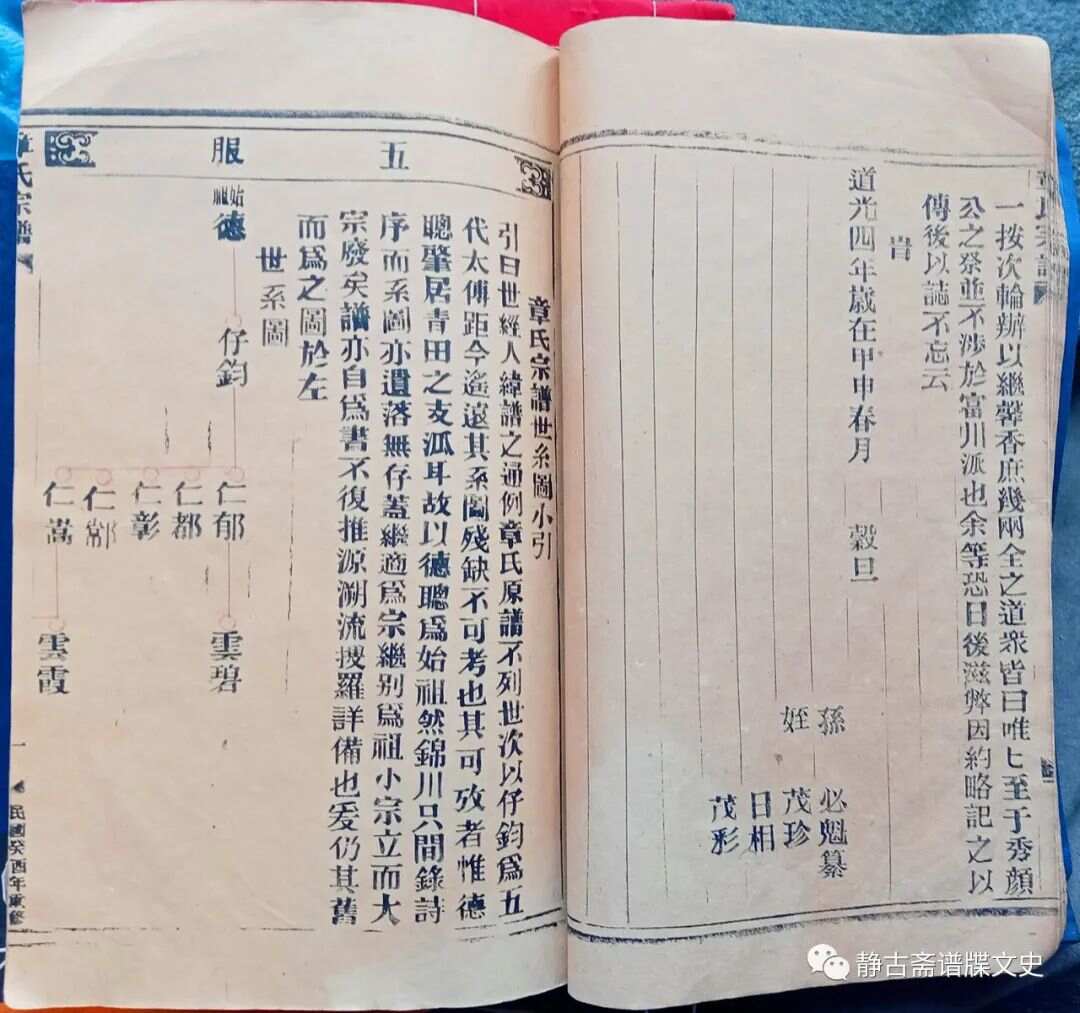 章氏宗譜
一按次輪辦以繼馨香庶幾兩全之道衆皆曰唯匕至于秀顔
公之祭並不涉於富川派也余等恐日後滋弊因約略記之以
傳後以誌不忘云
旹
道光四年歲在甲申春月 穀旦
孫 必魁纂
姪 茂珍
日相
茂彩
章氏宗譜世系圖小引
引曰世經人緯譜之通例章氏原譜不列世次以仔鈞爲五
代太傅距今遙遠其系圖殘缺不可考也其可攷者惟德
聰肇居青田之支瓜耳故以德聰爲始祖然錦川只間錄詩
序而系圖亦遺落無存蓋繼適爲宗繼别爲祖小宗立而大
宗廢矣譜亦自爲書不復推源溯流捜羅詳備也爰仍其舊
而爲之圖於左
世系圖
五服
始祖德
仔鈞
仁郁
仁都
仁彰
仁鄃
仁嵩
雲碧
雲霞
章氏宗譜
一
民國癸酉年重修
静古斋谱牒文史